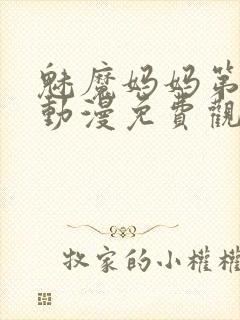 魅魔妈妈第
動漫免費觀
牧家的小權權